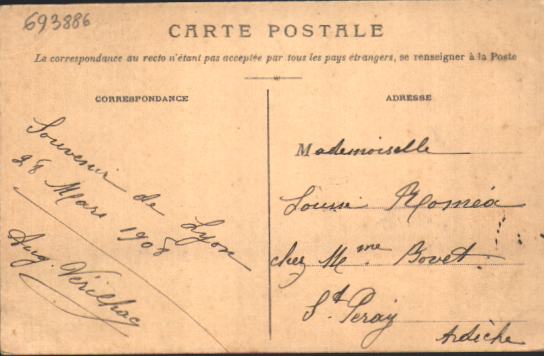 693886
CARTE POSTALE
La correspondance au recto n'étant pas acceptée par tous les pays étrangers, se renseigner à la Poste
CORRESPONDANCE
Souvenir de Lyon
28 Mars 1908
Aug. Vérilhac
ADRESSE
Mademoiselle
Louise Roméa
chez Mme Bovet
St Peray
Ardèche